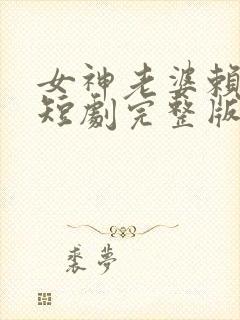 女神老婆賴
短劇完整版
裘夢